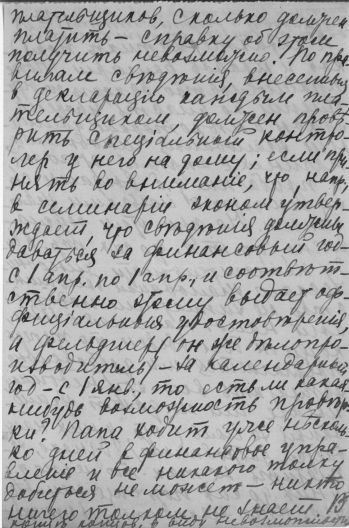 плательщиков, сколько должен
платить – справку об этом
получить невозможно. По пра-
вилам свѣдѣнія, внесенныя
в декларацію каждым пла-
тельщиком, должен провѣ-
рить спеціальный контро-
лер у него на дому; если при-
нять во вниманіе, что, напр.,
в семинаріи эконом утвер-
ждает, что свѣдѣнія должны
даваться за финансовый год –
с 1 апр. по 1 апр., и соотвѣт-
ственно этому выдает оф-
фиціальныя удостовѣренія,
а фельдшер (он же дѣлопро-
изводитель) – за календарный
год – с 1 янв., то есть ли какая
нибудь возможность провѣр-
ки? Папа ходит уже нѣсколь-
ко дней в финансовое упра-
вление и все никакого толку
добиться не может – никто
ничего толком не знает. В